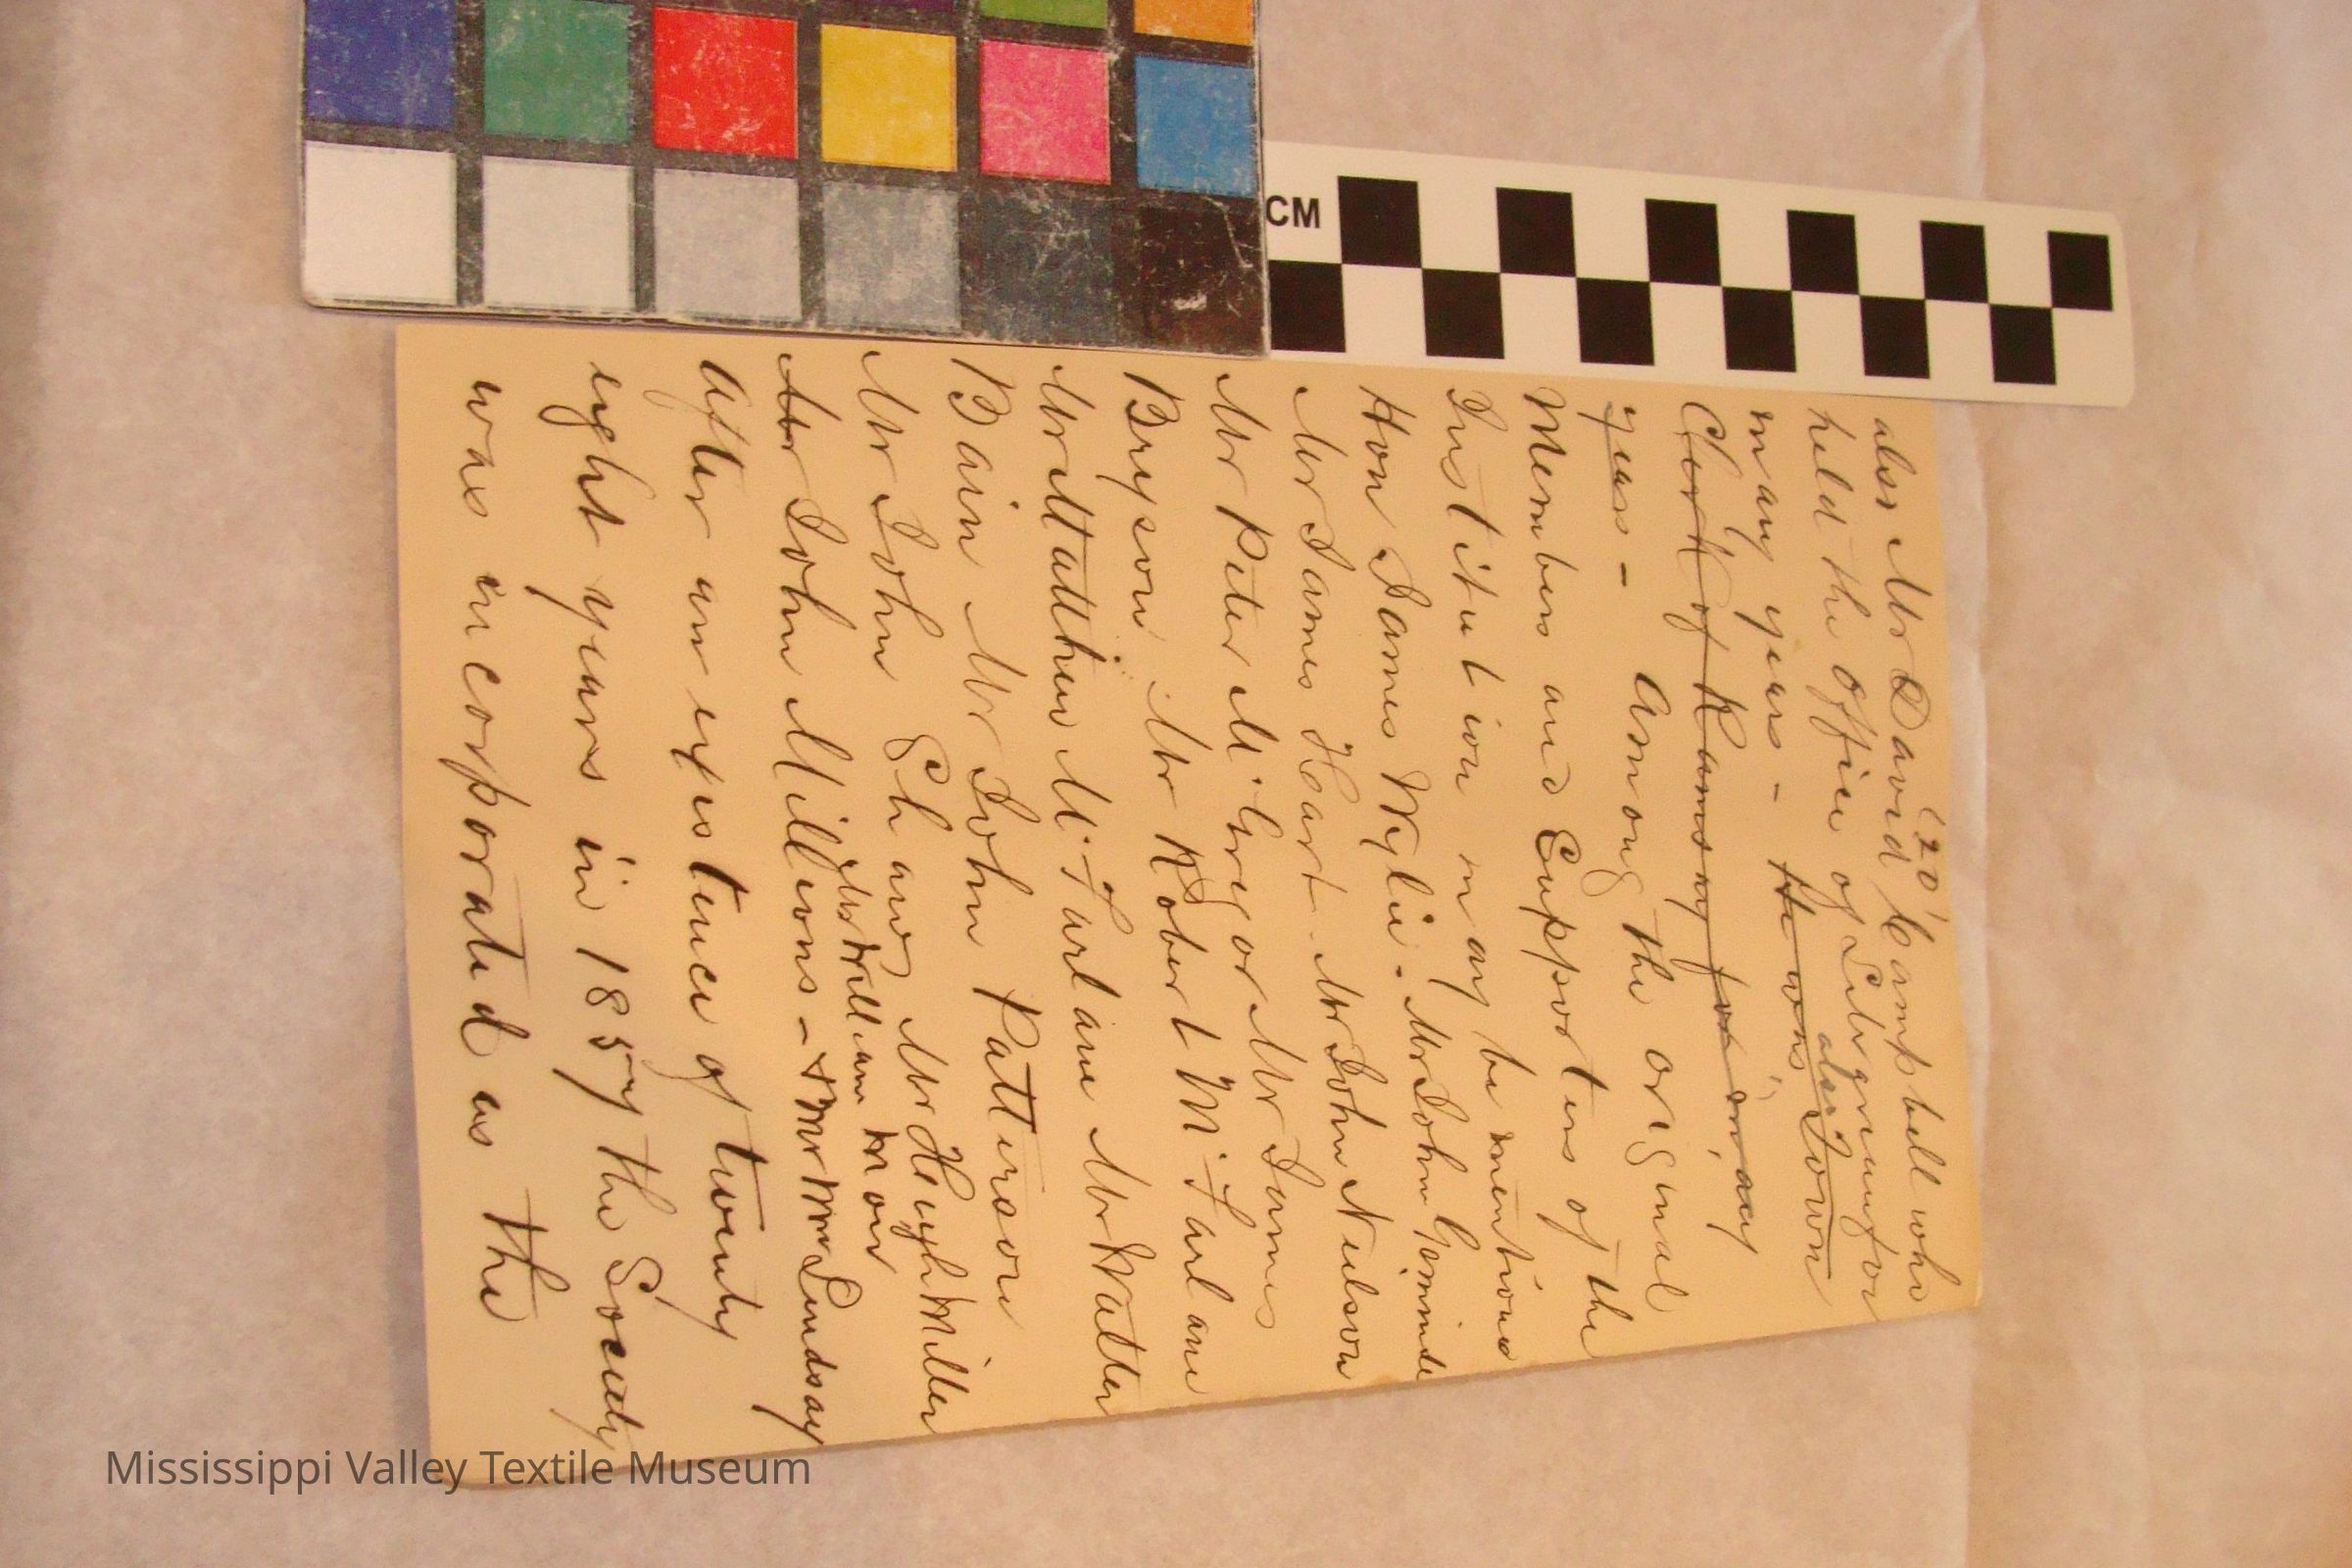 '20'
also Mr David Campbell who
held the office of Lib grium for
many years - He was also Town
Clerk of Ramsay for many
years - Among the original
Members and Supporters of the
Institution may be mentioned
Hon James Wylie. Mr John Gemmile
Mr James Hart. Mr John Neilson
Mr Peter McGregor Mr James
Bryson Mr Robert McFarlane
Mr Matthew McFarlane Mr Walter
Bain Mr John Patterson
Mr John Shaw Mr Hugh Miller
Mr William Moir
Mr John Millions - & Mr Wm Lindsay
After an existence of twenty
eight years in 1857 the Society
was incorporated as the
CM
Mississippi Valley Textile Museum